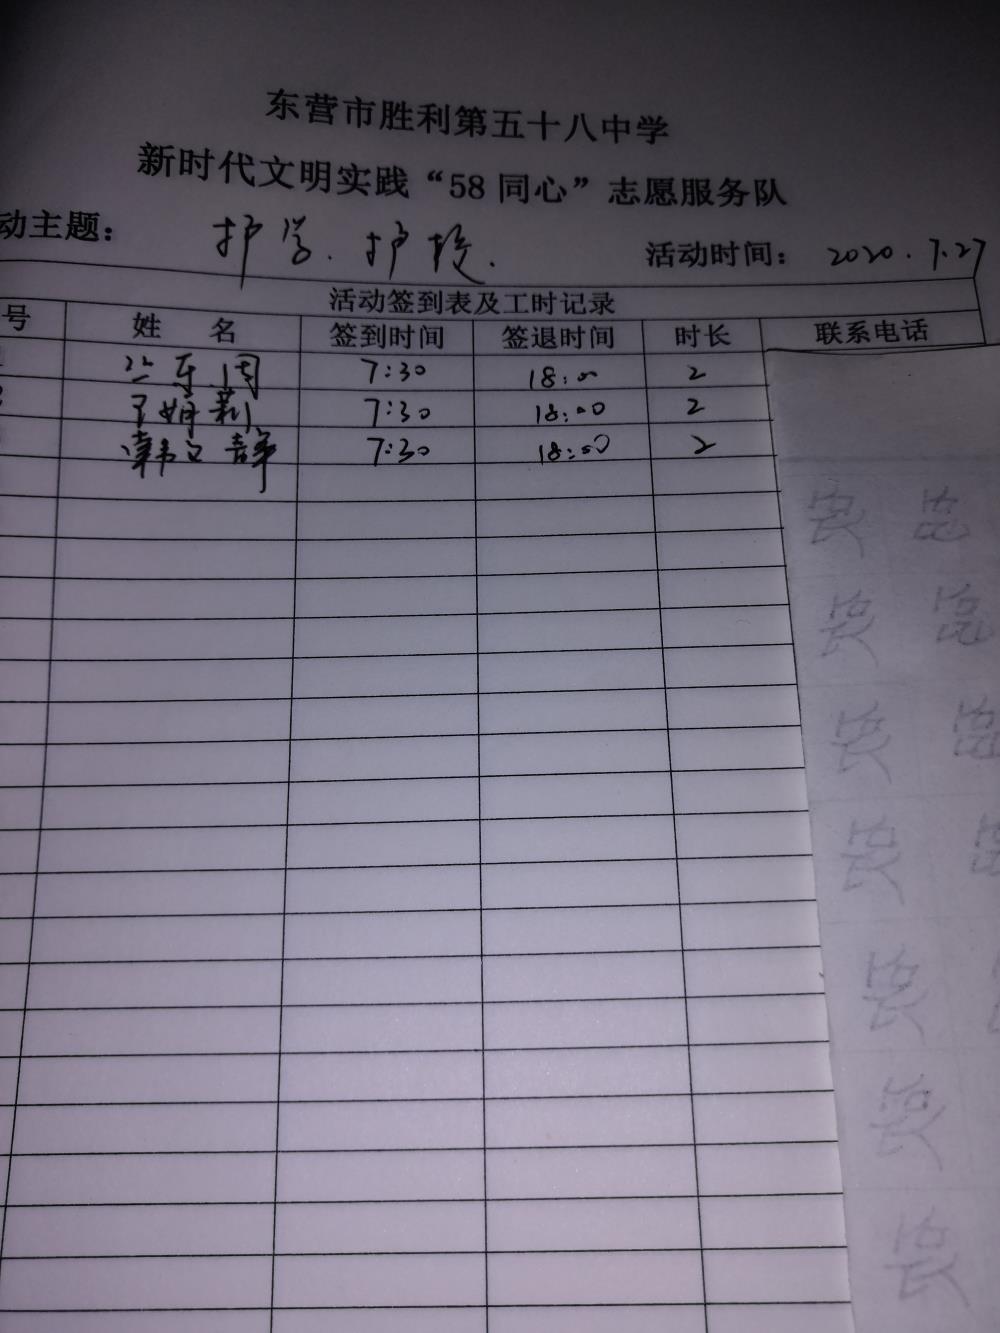 东营市胜利第五十八中学
新时代文明实践“58同心”志愿服务队
动主题： 护学.护校. 活动时间： 2020.7.27
活动签到表及工时记录
号 姓 名 签到时间 签退时间 时长 联系电话
兰乐周 7:30 18:00 2
7:30 18:00 2
7:30 18:00 2